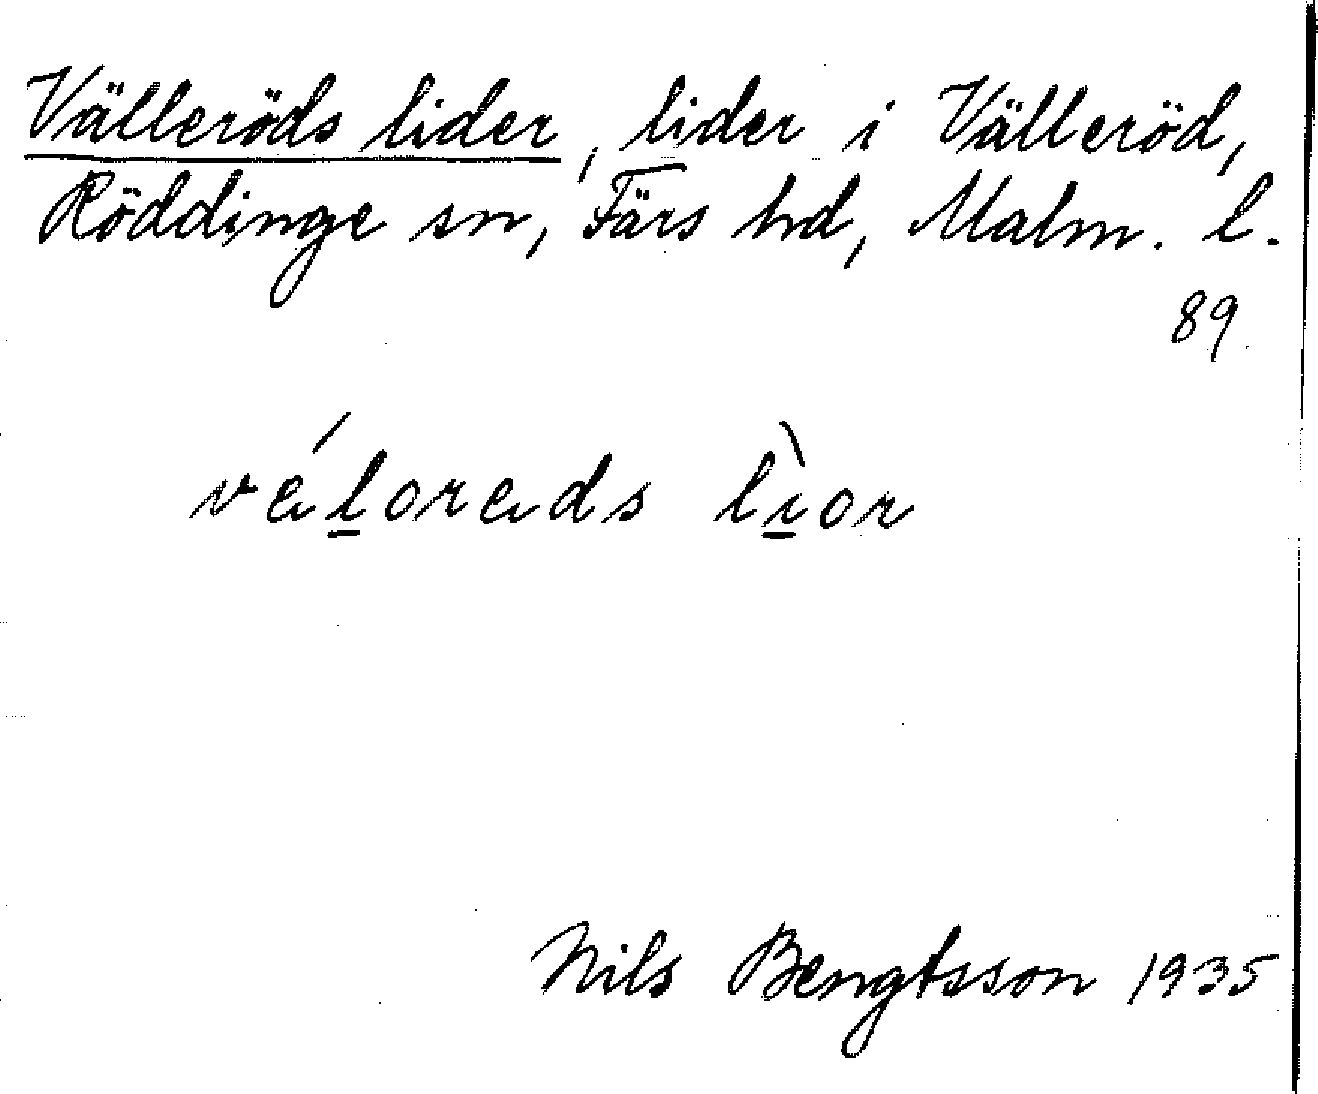 Välleröds lider, lider i Välleröd,
Röddinge sn, Färs hd, Malm. l.
89
váloreds lìor
Nils Bengtsson 1935